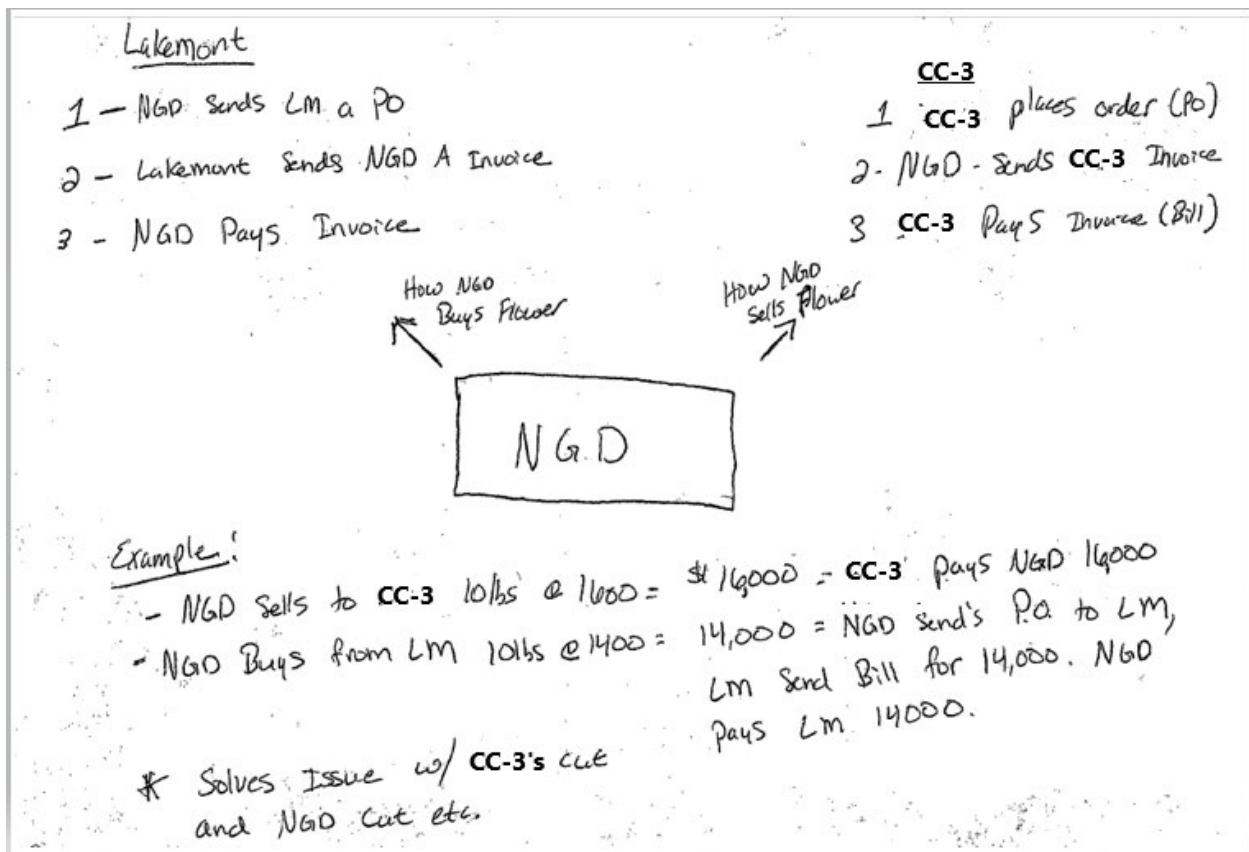 Lakemont
1 - NGD Sends LM a PO
2 - Lakemont Sends NGD A Invoice
3 - NGD Pays Invoice
CC-3
1 CC-3 places order (PO)
2 - NGD - Sends CC-3 Invoice
3 CC-3 Pays Invoice (Bill)
How NGD
Buys Flower
How NGD
Sells Flower
NGD
Example:
- NGD Sells to CC-3 10lbs @ 1600 = $16,000 = CC-3 pays NGD 16,000
- NGD Buys from LM 10lbs @ 1400 = 14,000 = NGD Send's P.O. to LM,
LM Send Bill for 14,000. NGD
pays LM 14000.
* Solves Issue w/ CC-3's cut
and NGD Cut etc.